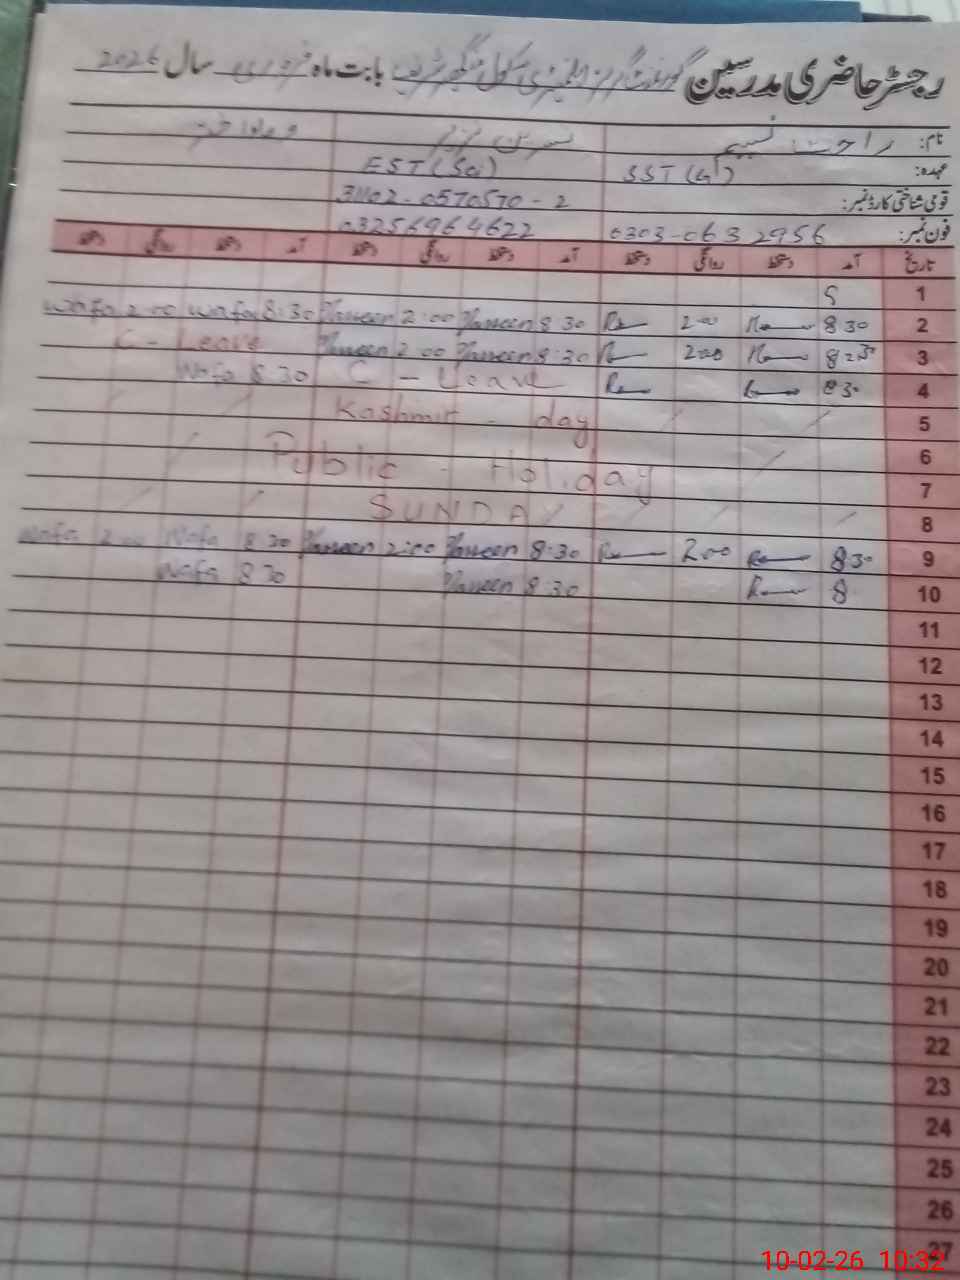 رجسٹر حاضری مدرسین گورنمنٹ گرلز ایلیمنٹری سکول بابت ماہ فروری سال 2026
نام: راحت نسیم
عہدہ: SST (G) EST (Sci)
قومی شناختی کارڈ نمبر: 31102-0570570-2
فون نمبر: 0303-0632956 03256964622
تاریخ آمد دستخط روانگی دستخط آمد دستخط روانگی دستخط آمد دستخط روانگی دستخط
1
2 8 30 2 00 8 30 2:00 Wafa 8:30 Wafa 2 00 Wafa
3 8 25 2 00 8:30 2 00 C - Leave
4 8 30 C - Leave 8 30 Wafa
5 Kashmir - day
6
7 Public - Holiday
8 SUNDAY
9 8 30 2 00 8:30 2:00 8 30 Wafa 2 00 Wafa
10 8 8:30 8 30 Wafa
11
12
13
14
15
16
17
18
19
20
21
22
23
24
25
26
27
10-02-26 10:32